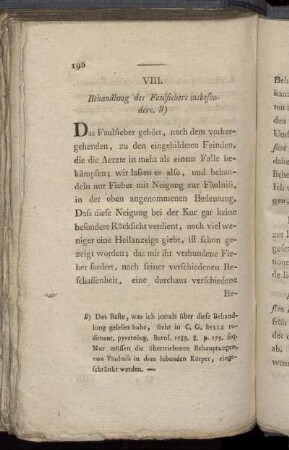 196
VIII.
Behandlung des Faulfiebers insbeson-
dere. 8)
Das Faulfieber gehört, nach dem vorher-
gehenden, zu den eingebildeten Feinden,
die die Aerzte in mehr als einem Falle be-
kämpfen; wir lassen es also, und behan-
deln nur Fieber mit Neigung zur Fäulniß,
in der oben angenommenen Bedeutung.
Dass diese Neigung bei der Kur gar keine
besondere Rücksicht verdient, noch viel we-
niger eine Heilanzeige giebt, ist schon ge-
zeigt worden; das mit ihr verbundene Fie-
ber fordert, nach seiner verschiedenen Be-
schaffenheit, eine durchaus verschiedene
Be-
8) Das Beste, was ich jemals über diese Behand-
lung gelesen habe, steht in C. G. Selle ru-
diment. pyretolog. Berol. 1789. 8. p. 179. sqq.
Nur müssen die übertriebenen Behauptungen,
von Fäulniß in dem lebenden Körper, einge-
schränkt werden. —